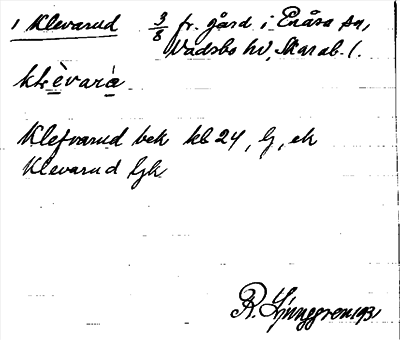 1 Klevarud 3/8 fr. gård i Enåsa sn,
Vadsbo hd, Skarab. l.
klèvarà
Klefvarud bek kb 24, lj, ek
Klevarud ljk
R. Ljunggren 1931